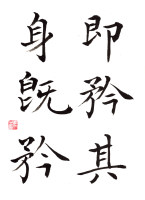 即矜其
身既矜